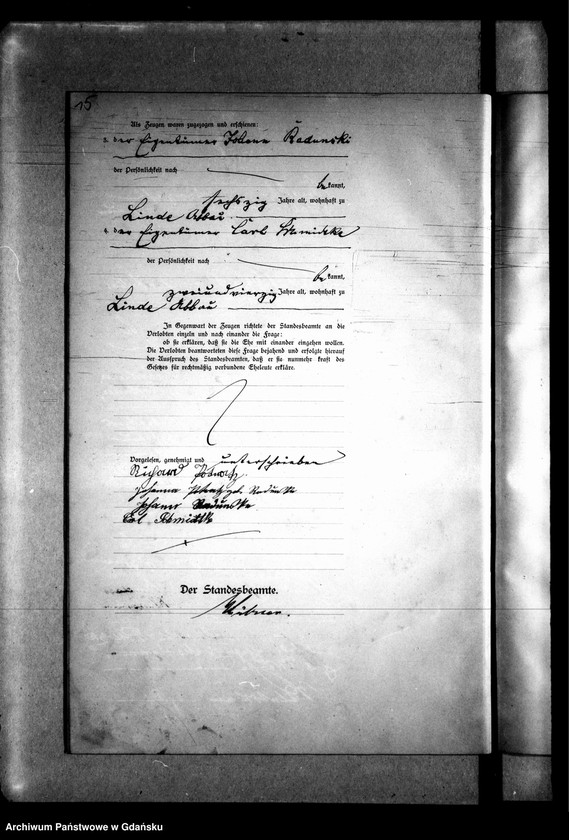 15
Als Zeugen waren zugezogen und erschienen:
3. der Eigentümer Johann Radunski
der Persönlichkeit nach
bekannt,
sechszig Jahre alt, wohnhaft zu
Linde Abbau
4. der Eigentümer Carl
der Persönlichkeit nach
bekannt,
zweiundvierzig Jahre alt, wohnhaft zu
Linde Abbau
In Gegenwart der Zeugen richtete der Standesbeamte an die
Verlobten einzeln und nach einander die Frage:
ob sie erklären, daß sie die Ehe mit einander eingehen wollen.
Die Verlobten beantworteten diese Frage bejahend und erfolgte hierauf
der Ausspruch des Standesbeamten, daß er sie nunmehr kraft des
Gesetzes für rechtmäßig verbundene Eheleute erkläre.
Vorgelesen, genehmigt und unterschrieben
Richard
Johanna geb. Radunske
Johann Radunske
Carl Schmidtke
Der Standesbeamte.
Archiwum Państwowe w Gdańsku